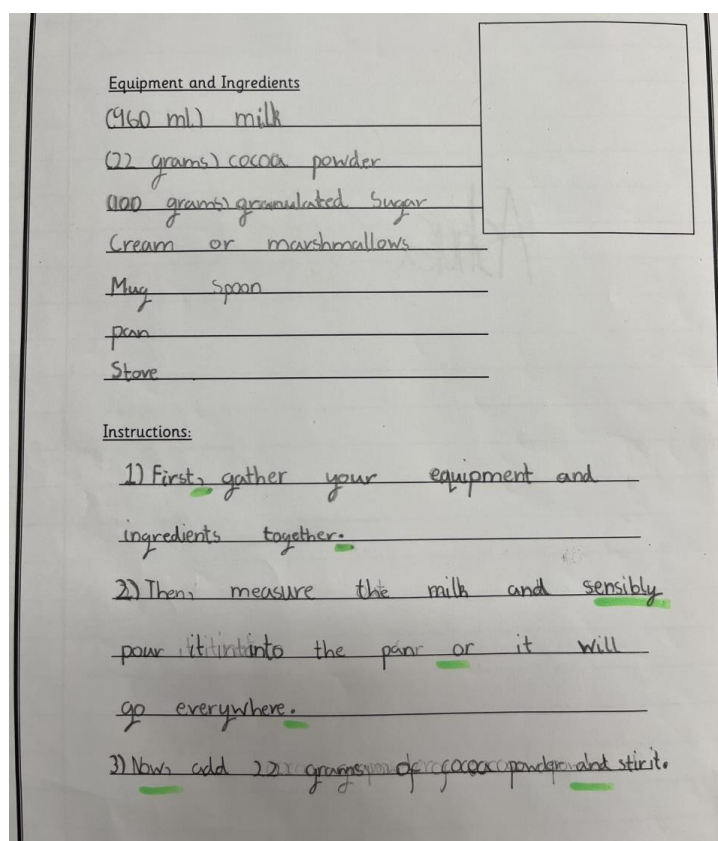 Equipment and Ingredients
(960 ml) milk
(22 grams) cocoa powder
(100 grams) granulated Sugar
Cream or marshmallows
Mug Spoon
pan
Stove
Instructions:
1) First, gather your equipment and
ingredients together.
2) Then, measure the milk and sensibly
pour it into the pan or it will
go everywhere.
3) Now, add 22 grams of cocoa powder and stir it.